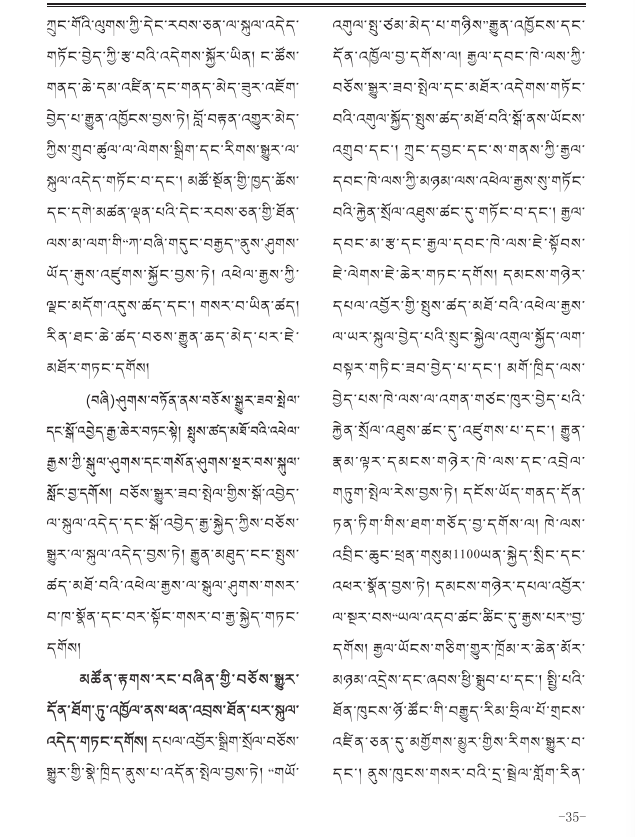 ཀྲུང་གོའི་ལུགས་ཀྱི་དེང་རབས་ཅན་ལ་སྐུལ་འདེད་
གཏོང་བྱེད་ཀྱི་རྩ་བའི་འདེགས་སྐྱོར་ཡིན། ང་ཚོས་
གནད་ཆེ་དམ་འཛིན་དང་གནད་མེད་ཟུར་འཇོག་
བྱེད་པ་རྒྱུན་འཁྱོངས་བྱས་ཏེ། བློ་བརྟན་འགྱུར་མེད་
ཀྱིས་གྲུབ་ཚུལ་ལ་ལེགས་སྒྲིག་དང་རིགས་སྒྱུར་ལ་
སྐུལ་འདེད་གཏོང་བ་དང་། མཚོ་སྔོན་གྱི་ཁྱད་ཆོས་
དང་དགེ་མཚན་ལྡན་པའི་དེང་རབས་ཅན་གྱི་ཐོན་
ལས་མ་ལག་གི“ཀ་བཞི་གདུང་བརྒྱད”ནུས་ཤུགས་
ཡོད་རྒུས་འཛུགས་སྐྱོང་བྱས་ཏེ། འཕེལ་རྒྱས་ཀྱི་
ལྗང་མདོག་འདུས་ཚད་དང་། གསར་བ་ཡིན་ཚད།
རིན་ཐང་ཆེ་ཚད་བཅས་རྒྱུན་ཆད་མེད་པར་ཇེ་
མཐོར་གཏང་དགོས།
(བཞི)ཤུགས་བཏོན་ནས་བཅོས་སྒྱུར་ཟབ་སྤེལ་
དང་སྒོ་འབྱེད་རྒྱ་ཆེར་བཏང་སྟེ། སྤུས་ཚད་མཐོ་བའི་འཕེལ་
རྒྱས་ཀྱི་སྒུལ་ཤུགས་དང་གསོན་ཤུགས་སྔར་བས་སྐུལ་
སློང་བྱ་དགོས། བཅོས་སྒྱུར་ཟབ་སྤེལ་གྱིས་སྒོ་འབྱེད་
ལ་སྐུལ་འདེད་དང་སྒོ་འབྱེད་རྒྱ་སྐྱེད་ཀྱིས་བཅོས་
སྒྱུར་ལ་སྐུལ་འདེད་བྱས་ཏེ། རྒྱུན་མཐུད་ངང་སྤུས་
ཚད་མཐོ་བའི་འཕེལ་རྒྱས་ལ་སྒུལ་ཤུགས་གསར་
བ་ཁ་སྣོན་དང་བར་སྟོང་གསར་བ་རྒྱ་སྐྱེད་གཏང་
དགོས།
མཚོན་རྟགས་རང་བཞིན་གྱི་བཅོས་སྒྱུར་
དོན་ཐོག་ཏུ་འཁྱོལ་ནས་ཕན་འབྲས་ཐོན་པར་སྐུལ་
འདེད་གཏང་དགོས། དཔལ་འབྱོར་སྒྲིག་སྲོལ་བཅོས་
སྒྱུར་གྱི་སྣེ་ཁྲིད་ནུས་པ་འདོན་སྤེལ་བྱས་ཏེ། “གཡོ་
འགུལ་སྤུ་ཙམ་མེད་པ་གཉིས”རྒྱུན་འཁྱོངས་དང་
དོན་འཁྱོལ་བྱ་དགོས་ལ། རྒྱལ་དབང་ཁེ་ལས་ཀྱི་
བཅོས་སྒྱུར་ཟབ་སྤེལ་དང་མཐོར་འདེགས་གཏོང་
བའི་འགུལ་སྐྱོད་སྤུས་ཚད་མཐོ་བའི་སྒོ་ནས་ཡོངས་
འགྲུབ་དང་། ཀྲུང་དབྱང་དང་ས་གནས་ཀྱི་རྒྱལ་
དབང་ཁེ་ལས་ཀྱི་མཉམ་ལས་འཕེལ་རྒྱས་སུ་གཏོང་
བའི་རྐྱེན་སྲོལ་འཐུས་ཚང་དུ་གཏོང་བ་དང་། རྒྱལ་
དབང་མ་རྩ་དང་རྒྱལ་དབང་ཁེ་ལས་ཇེ་སྟོབས་
ཇེ་ལེགས་ཇེ་ཆེར་གཏང་དགོས། དམངས་གཉེར་
དཔལ་འབྱོར་གྱི་སྤུས་ཚད་མཐོ་བའི་འཕེལ་རྒྱས་
ལ་ཡར་སྐུལ་བྱེད་པའི་སྲུང་སྐྱེལ་འགུལ་སྐྱོད་ལག་
བསྟར་གཏིང་ཟབ་བྱེད་པ་དང་། མགོ་ཁྲིད་ལས་
བྱེད་པས་ཁེ་ལས་ལ་འགན་གཙང་ཁུར་བྱེད་པའི་
རྐྱེན་སྲོལ་འཐུས་ཚང་དུ་འཛུགས་པ་དང་། རྒྱུན་
རྣམ་ལྟར་དམངས་གཉེར་ཁེ་ལས་དང་འབྲེལ་
གཏུག་སྤེལ་རེས་བྱས་ཏེ། དངོས་ཡོད་གནད་དོན་
ཏན་ཏིག་གིས་ཐག་གཅོད་བྱ་དགོས་ལ། ཁེ་ལས་
འབྲིང་ཆུང་ཕྲན་གསུམ1100ཡན་སྐྱེད་སྲིང་དང་
འཕར་སྣོན་བྱས་ཏེ། དམངས་གཉེར་དཔལ་འབྱོར་
ལ་སྔར་བས“ཡལ་འདབ་ཚང་ཚིང་དུ་རྒྱས་པར”བྱ་
དགོས། རྒྱལ་ཡོངས་གཅིག་གྱུར་ཁྲོམ་ར་ཆེན་མོར་
མཉམ་འདྲེས་དང་ཞབས་ཕྱི་སྒྲུབ་པ་དང་། སྤྱི་པའི་
ཐོན་ཁུངས་ཉོ་ཚོང་གི་བརྒྱུད་རིམ་ཧྲིལ་པོ་གྲངས་
འཛིན་ཅན་དུ་མགྱོགས་མྱུར་གྱིས་རིགས་སྒྱུར་བ་
དང་། ནུས་ཁུངས་གསར་བའི་དྲ་སྦྲེལ་གློག་རིན་
-35-